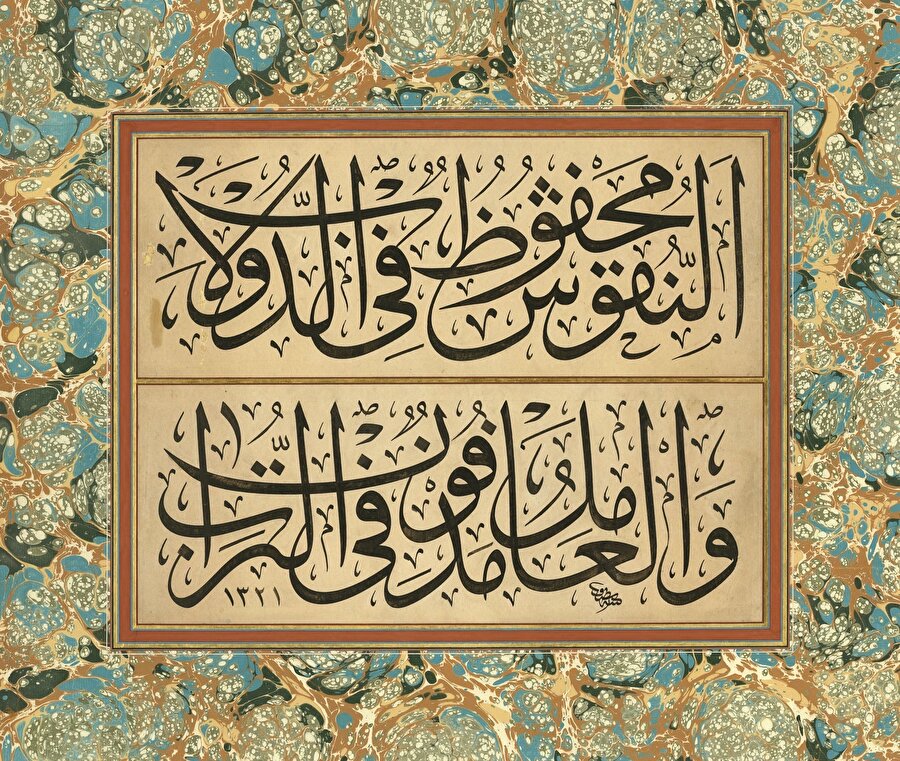 النقوش محفوظ في الدولاب
والعامل مدفون في التراب
١٣٢١